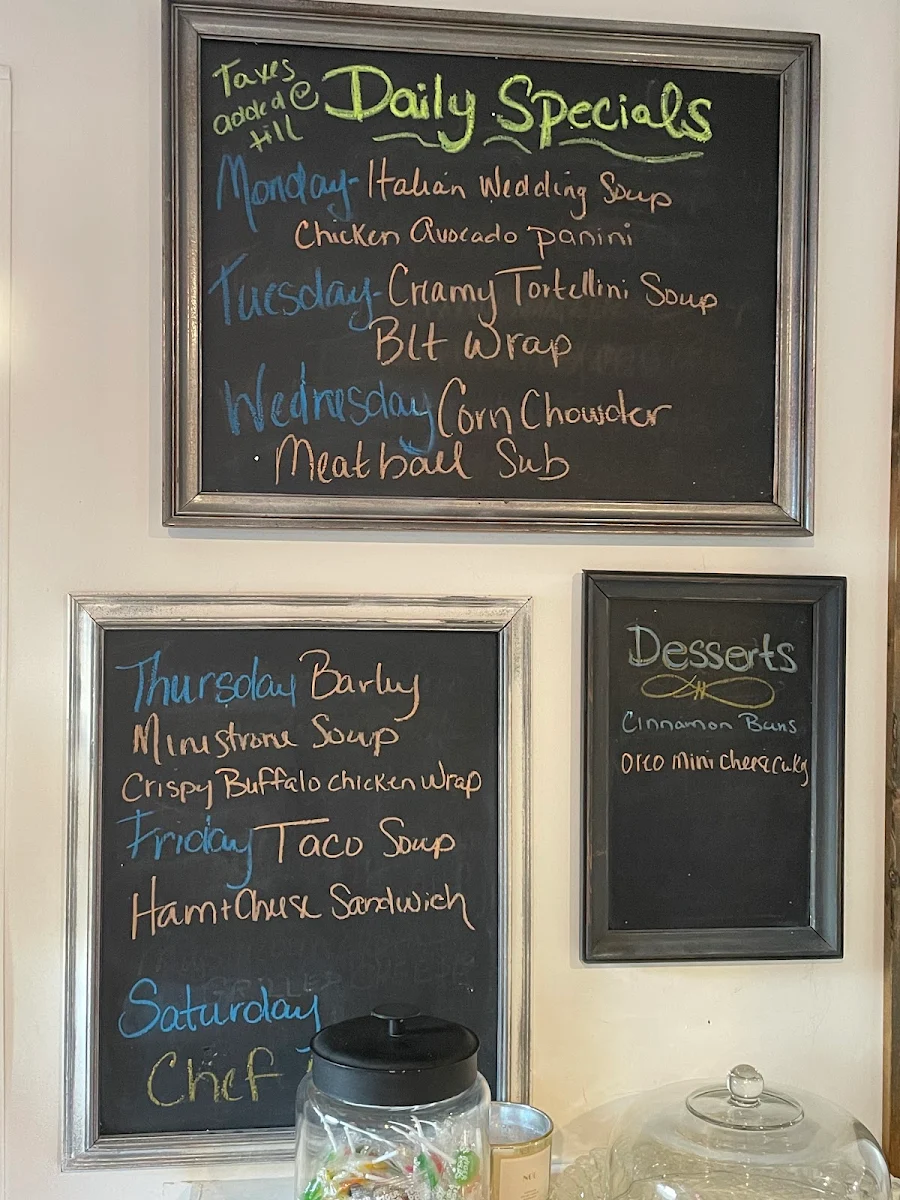 Taxes
added @
till
Daily Specials
Monday - Italian Wedding Soup
Chicken Avocado panini
Tuesday - Creamy Tortellini Soup
Blt Wrap
Wednesday Corn Chowder
Meatball Sub
Thursday Barley
Minestrone Soup
Crispy Buffalo chicken wrap
Friday Taco Soup
Ham + Cheese Sandwich
GRILLED CHEESE
Saturday
Chef
Desserts
Cinnamon Buns
Oreo mini cheesecakes